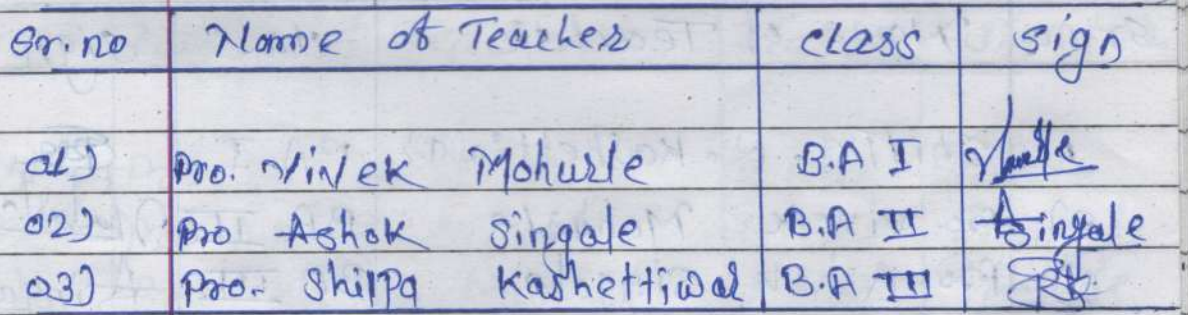 Sr.no Name of Teacher class sign
01) Pro. Vivek Mohurle B.A I
02) Pro Ashok Singale B.A II Asingale
03) Pro. Shilpa Kashettiwar B.A III